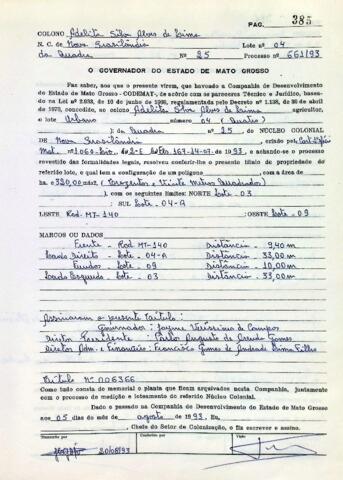 PAG. 385
COLONO Adelita Silva Alves de Lima
N. C. de Nova Brasilândia Lote nº 04
da Quadra Nº 25 Processo nº 661/93
O GOVERNADOR DO ESTADO DE MATO GROSSO
Faz saber, aos que o presente virem, que havendo a Companhia de Desenvolvimento
do Estado de Mato Grosso - CODEMAT, de acordo com os pareceres Técnico e Jurídico, basea-
da na Lei nº 2.638, de 10 de junho de 1966, regulamentada pelo Decreto nº 1.138, de 30 de abril
de 1973, concedido, ao colono Adelita Silva Alves de Lima agricultor,
o lote Urbano número 04 (Quatro)
); da Quadra nº 25, do NÚCLEO COLONIAL
DE Nova Brasilândia, criado pela
Mat. nº 1.060 de 1993, e achando-se o processo
revestido das formalidades legais, resolveu conferir-lhe o presente título de propriedade do
referido lote, o qual tem a configuração de um polígono com a área de
ha e 320,00 mts2, (Trezentos e Vinte Metros Quadrados)
), com os seguintes limites: NORTE Lote - 03
SUL Lote - 04-A
LESTE Rod. MT-140 ; OESTE Lote - 09
MARCOS OU DADOS
Frente - Rod MT-140 Distância - 9,40 m
Lado Direito - Lote - 04-A Distância - 33,00 m
Fundos - Lote - 09 Distância - 10,00 m
Lado Esquerdo - Lote - 03 Distância - 33,00 m
Assinaram o presente título:
Governador: Jayme Veríssimo de Campos
Diretor Presidente: Carlos Augusto de Arruda Gomes
Diretor Adm. e Financeiro: Francisco Gomes de Andrade Lima Filho
Título Nº 006366
Como tudo consta do memorial e planta que ficam arquivados nesta Companhia, juntamente
com o processo de medição e loteamento do referido Núcleo Colonial.
Dado e passado na Companhia de Desenvolvimento do Estado de Mato Grosso
aos 05 dias do mês de agosto de 1993. Eu,
, Chefe do Setor de Colonização, o fiz escrever e assino.
Transcrito por Conferido por Visto
20/08/93